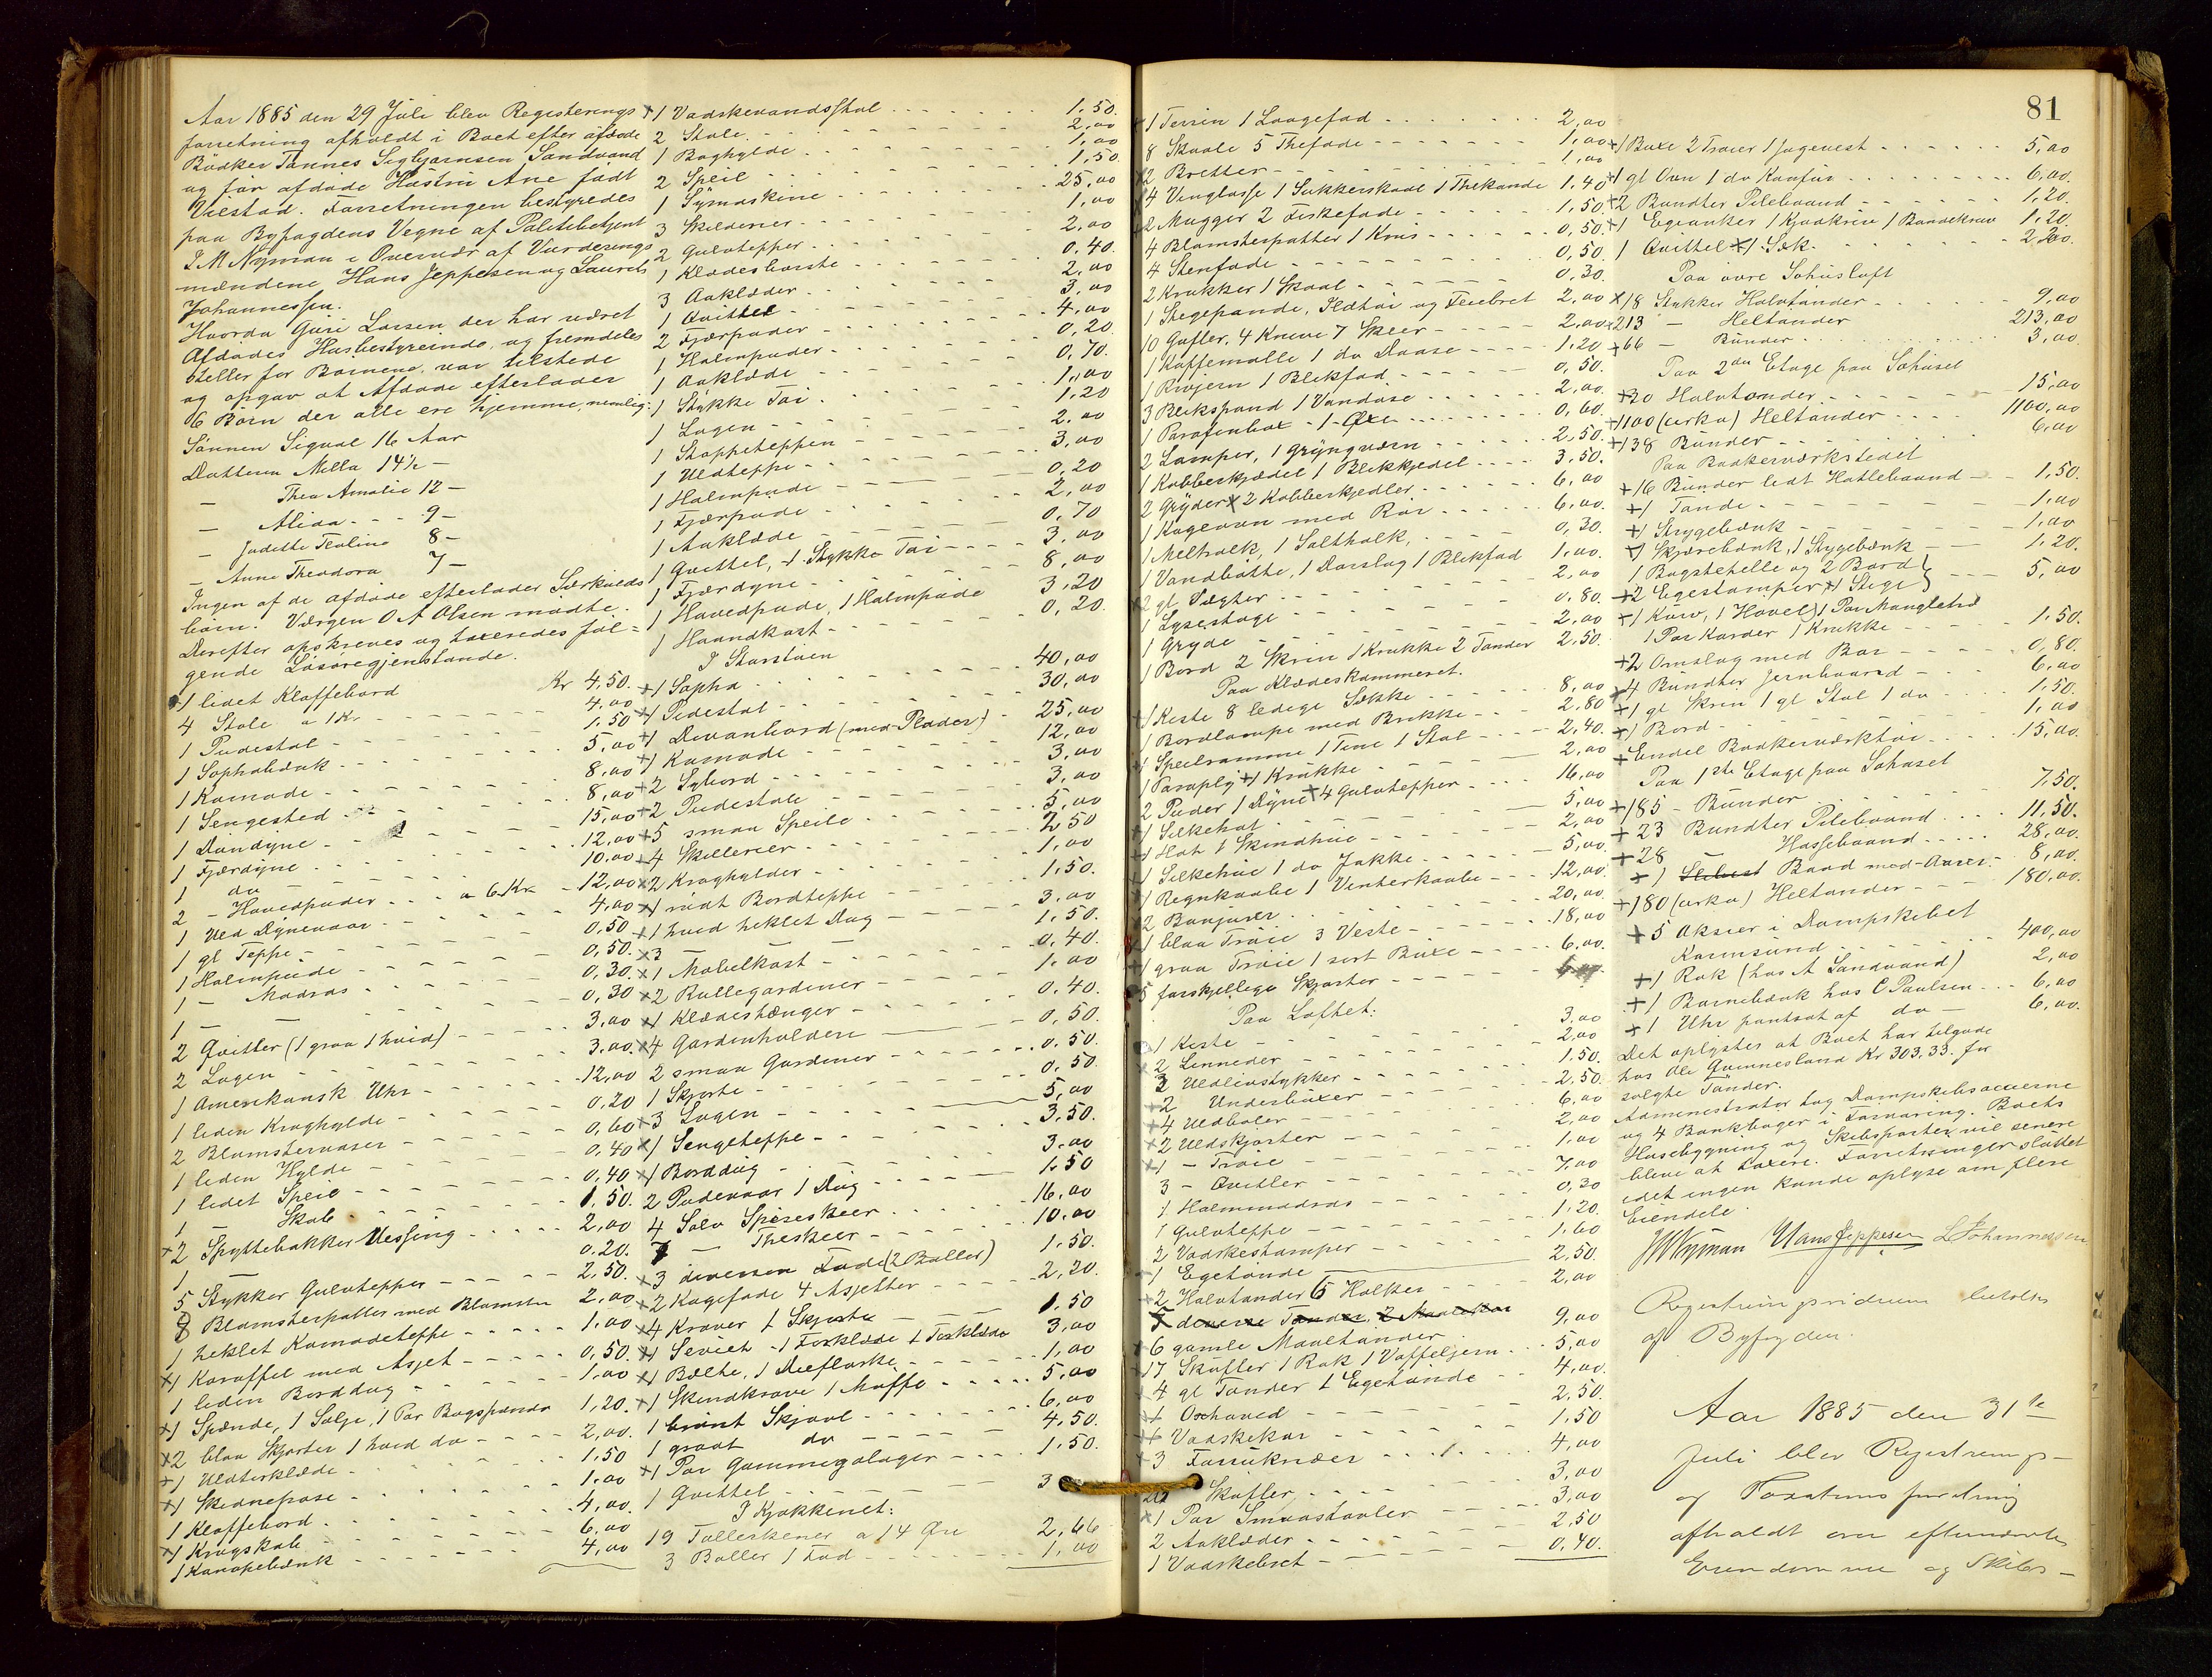 Aar 1885 den 29 Juli blev Registerings
forretning afholdt i Boet efter afdøde
Bödker Tønnes Sigbjørnsen Sandvand
og før afdøde Hustru Ane født
Vilstad. Forretningen bestyredes
paa Byfogdens Vegne af Politibetjent
J M Nyman i Overvær af Vurderings
mændene Hans Jeppesen og Laurets
Johannessen.
Hvorda Guri Larsen der har været
Afdødes Husbestyreinde, og fremdeles
steller for Børnene, var tilstede
og opgav at Afdøde efterlader
6 Börn der alle ere hjemme, nemlig:
Sønnen Sigval 16 Aar
Datteren Nilla 14½ –
– Thea Amalie 12 –
– Alida - - - 9 –
– Judithe Teoline 8 –
– Anne Theodora 7 –
Ingen af de afdøde efterlader Særkulds
börn. Værgen O A Olsen mødte.
Derefter opskreves og taxeredes föl=
gende Løsöregjenstande.
1 lidet Klaffebord Kr 4,50.
4 Stole a 1 Kr 4,00
1 Pidestal 1,50
1 Sophabænk 5,00
1 Komode 8,00
1 Sengested 8,00
1 Dundyne 15,00
1 Fjærdyne 12,00
1 do 10,00
2 – Hovedpuder a 6 Kr 12,00
1 Uld Dynevaar 4,00
1 gl Teppe 0,50
1 Halmpude 0,50.
1 – Madras 0,30.
1 – 0,30
2 Qvitler (1 graa 1 hvid) 3,00
2 Lagen 3,00.
1 Amerikansk Uhr 12,00
1 liden Kraghylde 0,20
2 Blomstervaser 0,60
1 liden Hylde 0,40
1 lidet Speil 0,40
1 Skab 1,50.
+2 Spyttebakker Messing 2,00
1 – 0,20.
5 Stykker Gulvtepper 2,50.
8 Blomsterpotter med Blomster 2,00
1 heklet Komodeteppe 1,00
+1 Karaffel med Asjet 0,50.
1 liden Borddug 1,00
+1 Spænde, 1 Sølje, 1 Par Bugspænder 1,20.
+2 blaa Skjorter 1 hvid do 2,00.
+1 Uldtørklæde 1,50
+1 Skindpose 1,00
1 Klaffebord 4,00.
+1 Kragskab 6,00
1 Kanapebænk 4,00
+1 Vadskevandsstol 1.50.
2 Stole 2,00
1 Boghylde 1,00
2 Speil 1,50.
1 Symaskine 25,00
3 Skilderier 1,00
2 Gulvtepper 2,00
1 Klædesbørste 0,40.
3 Aaklæder 2,00
1 Qvittel 3,00
2 Fjærpuder 4,00
1 Halmpuder 0,20
1 Aaklæde 0,70.
1 Stykke Töi 1,00
1 Lagen 1,20
1 Stoppeteppen 2,00
1 Uldteppe 3,00
1 Halmpude 0,20
1 Fjærpude 2,00
1 Aaklæde 0,70
1 Qvittel, 1 Stykke Töi 3,00
1 Fjærdyne 8,00
1 Hovedpude, 1 Halmpude 3,20
1 Haandkost 0,20.
I Storstuen
+1 Sopha 40,00
+1 Pidestal 30,00
+1 Divanbord (med Plader) 25,00
+1 Komode 12,00
+2 Sybord 3,00
+2 Pidestale 3,00
+5 smaa Speile 5,00
+4 Skillerier 2,50
+2 Kraghylder 1,00
+1 rødt Bordteppe 1,50.
+1 hvid heklet Dug 3,00
+3 – 1,50.
+1 Mobelkost 0,40.
+2 Rullegardiner 1,00
+1 Klædeshænger 0,40.
+4 Gardinholdere 0,50.
2 smaa Gardiner 0,50.
1 Skjorte 0,50.
+3 Lagen 5,00
+1 Sengeteppe 3,50.
+1 Borddug 3,00
2 Pudevaar 1 Dug 1,50
4 Sølv Spiseskeer 16,00
7 – Theskeer 10,00
+3 diverse Fade (2 Boller) 1,50.
+2 Kagefade 4 Asjetter 2,20.
+4 Kraver 1 Skjorte 1,50
+1 Seviet 1 Forklæde 1 Torklæde 3,00
+1 Bælte, 1 Dieflaske 1,00
+1 Skindkrave 1 Muffe 5,00
1 brunt Skjavl 6,00
1 graat do 4,50.
+1 Par Gummigaloger 1,50.
1 Qvittel 3
I Kjøkkenet:
19 Tallerkener a 14 Øre 2,66
3 Boller 1 Fad 1,00
+1 Terrin 1 Laagefad 2,00
8 Skaale 5 Thefade 1,00
+2 Bretter 1,00
4 Vinglasse 1 Sukkerskaal 1 Thekande 1,40
+2 Mugger 2 Fiskefade 1,50.
4 Blomsterpotter 1 Krus 0,50.
4 Stenfade 0,50.
2 Krukker 1 Skaal 0,30.
1 Stegepande, Ildtøi og Feiebret 2,00
10 Gafler, 4 Knive 7 Skeer 2,00
1 Kaffemølle 1 do Daase 1,20
1 Rivjern 1 Blikfad 0,50.
3 Blikspand 1 Vandøse 2,00.
1 Parafinbox 1 Øxe 0,60.
2 Lamper, 1 Gryngværn 2,50.
1 Kobberkjedel 1 Blikkjedel 3,50.
2 Gryder + 2 Kobberkjedler 6,00
1 Kogeovn med Rör 6,00
1 Melholk, 1 Saltholk, 0,30.
1 Vandbötte, 1 Dørslag 1 Blikfad 1,00.
+2 gl Vægter 2,00
1 Lysestage 0,80.
1 Gryde 2,00
1 Bord 2 Skrin 1 Krukke 2 Tønder 2,50.
Paa Klædeskammeret.
+1 Kiste 8 ledige Sække 8,00
1 Bordlampe med Brikke 2,80
+1 Speilramme 1 Tine 1 Stol 2,40.
1 Paraply + 1 Krukke 2,00
2 Puder 1 Dyne + 4 Gulvtepper 16,00
+1 Silkehat 5,00
+1 Hat 1 Skindhue 2,00
1 Silkehue 1 do Jakke 5,00.
1 Regnkaabe 1 Vinterkaabe 12,00.
+2 Bonjurer 20,00
+1 blaa Tröie 3 Veste 18,00
+1 graa Tröie 1 sort Buxe 6,00.
5 forskjellige Skjorter
Paa Loftet:
1 Kiste 3,00
+2 Linneder 2,00
3 Uldlivstykker 1,50.
+2 Underbuxer 2,50.
+4 Uldboler 6,00
+2 Uldskjorter 2,00
+1 – Tröie 1,00
3 – Qvitler 7,00
1 Halmmadras 0,30
1 Gulvteppe 1,20.
2 Vadskestamper 1,60
+1 Egetönde 2,50.
+2 Halvtønder 5 Holker 2,00
5 diverse Tønder,
+6 gamle Maaltønder 9,00
+17 Skufler 1 Rok 1 Vaffeljern 5,00
+4 gl Tønder 1 Egetønde 4,00.
+1 Oxhoved 2,50.
+1 Vadskekar 1,50
+3 4,00
Skufler 3,00
+1 Par Smaastøvler 3,00
2 Aaklæder 2,50
1 Vadskebret 0,40.
81
+1 Buxe 2 Tröier 1 Jagevest 5,00
+1 gl Ovn 1 do Komfur 6,00.
+2 Bundter Pilebaand 1,20.
+1 Egeanker 1 1 Baandekniv 1,20.
1 Qvittel + 1 Sæk 2,20.
Paa øvre Søhusloft
+18 Stykker Halvtønder 9,00
+213 – Heltønder 213,00
+66 – Bunder 3,00
Paa 2den Etage paa Søhuset
+30 Halvtønder 15,00
+1100 (cirka) Heltønder 1100,00
+138 Bunder 6,00
Paa Bødkerværkstedet
+16 Bunder lidt Hatlebaand 1,50.
+1 Tønde 1,00
+1 Strygebænk 1,00
+1 Skjærebænk, 1 Strygebænk 1,20.
1 Bagstehelle og 2 Bord
+2 Egestamper, + 1 Stige 5,00
+1 Kurv, 1 Høvel, 1 Par Mangletræ
1 Par Karder 1 Krukke 1,50.
+2 Omslag med Bor 0,80.
+4 Bundter Jernbaand 6,00
+1 gl Skrin 1 gl Stol 1 do 1,50.
+1 Bord 1,00
+Endel Bødkerværktøi 15,00.
Paa 1ste Etage paa Søhuset
+185 – Bunder 7,50.
+23 Bundter Pilebaand 11,50.
+28 – Hasselbaand 28,00.
+1 Baad med Aarer 8,00.
+180 (cirka) Heltønder 180,00.
+5 Aksier i Dampskibet
Karmsund 400,00
+1 Rok (hos A Sandvand) 2,00
+1 Barnebænk hos C Paulsen 6,00
+1 Uhr pantsat af do – 6,00.
Det oplystes at Boet har tilgode
hos Ole Gumnesland Kr 303,33. for
solgte Tønder.
Administrator tog Dampskibsacierne
og 4 Bankbøger i Forvaring. Boets
Husebygning og Skibsparter vil senere
blive at taxere. Forretninger sluttet
idet ingen kunde oplyse om flere
Eiendele.
JMNyman Hans Jeppesen L Johannesen
af Byfogden.
Aar 1885 den 31te
Juli blev Registrerings-
og Taxationsforretning
afholdt over efternævnte
Eiendomme og Skibs-